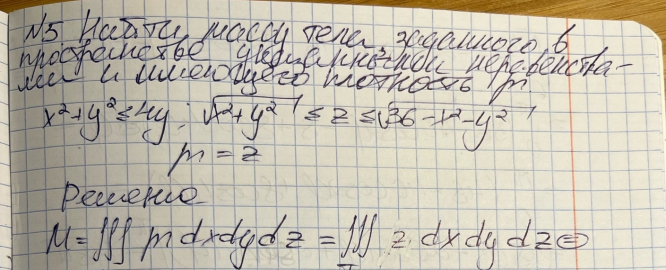 №5 Найти массу тела заданного в
пространстве указанными неравенства-
ми и имеющего плотность μ
x²+y² ≤ 4y; √x²+y² ≤ z ≤ √36-x²-y²
μ = z
Решение
M = ∭ μ dxdydz = ∭ z dxdydz ⊜